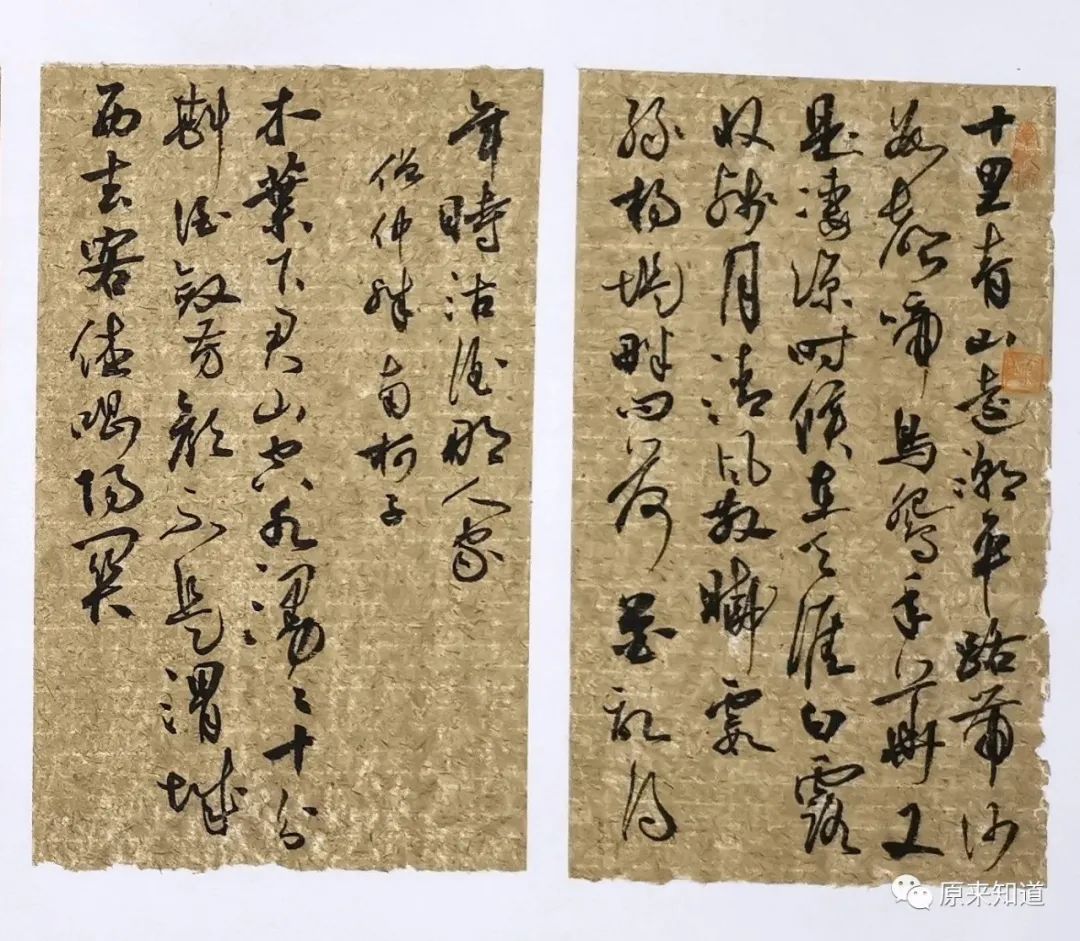 十里青山遠潮平路帶沙
數聲啼鳥怨年華又
是淒涼時候在天涯白露
收殘月清風散曉霞
綠楊堤畔問荷花記得
年時沽酒那人家
僧仲殊 南柯子
木葉下君山空水漫漫十分
斟酒斂芳顏不是渭城
西去客休唱陽關
原来知道